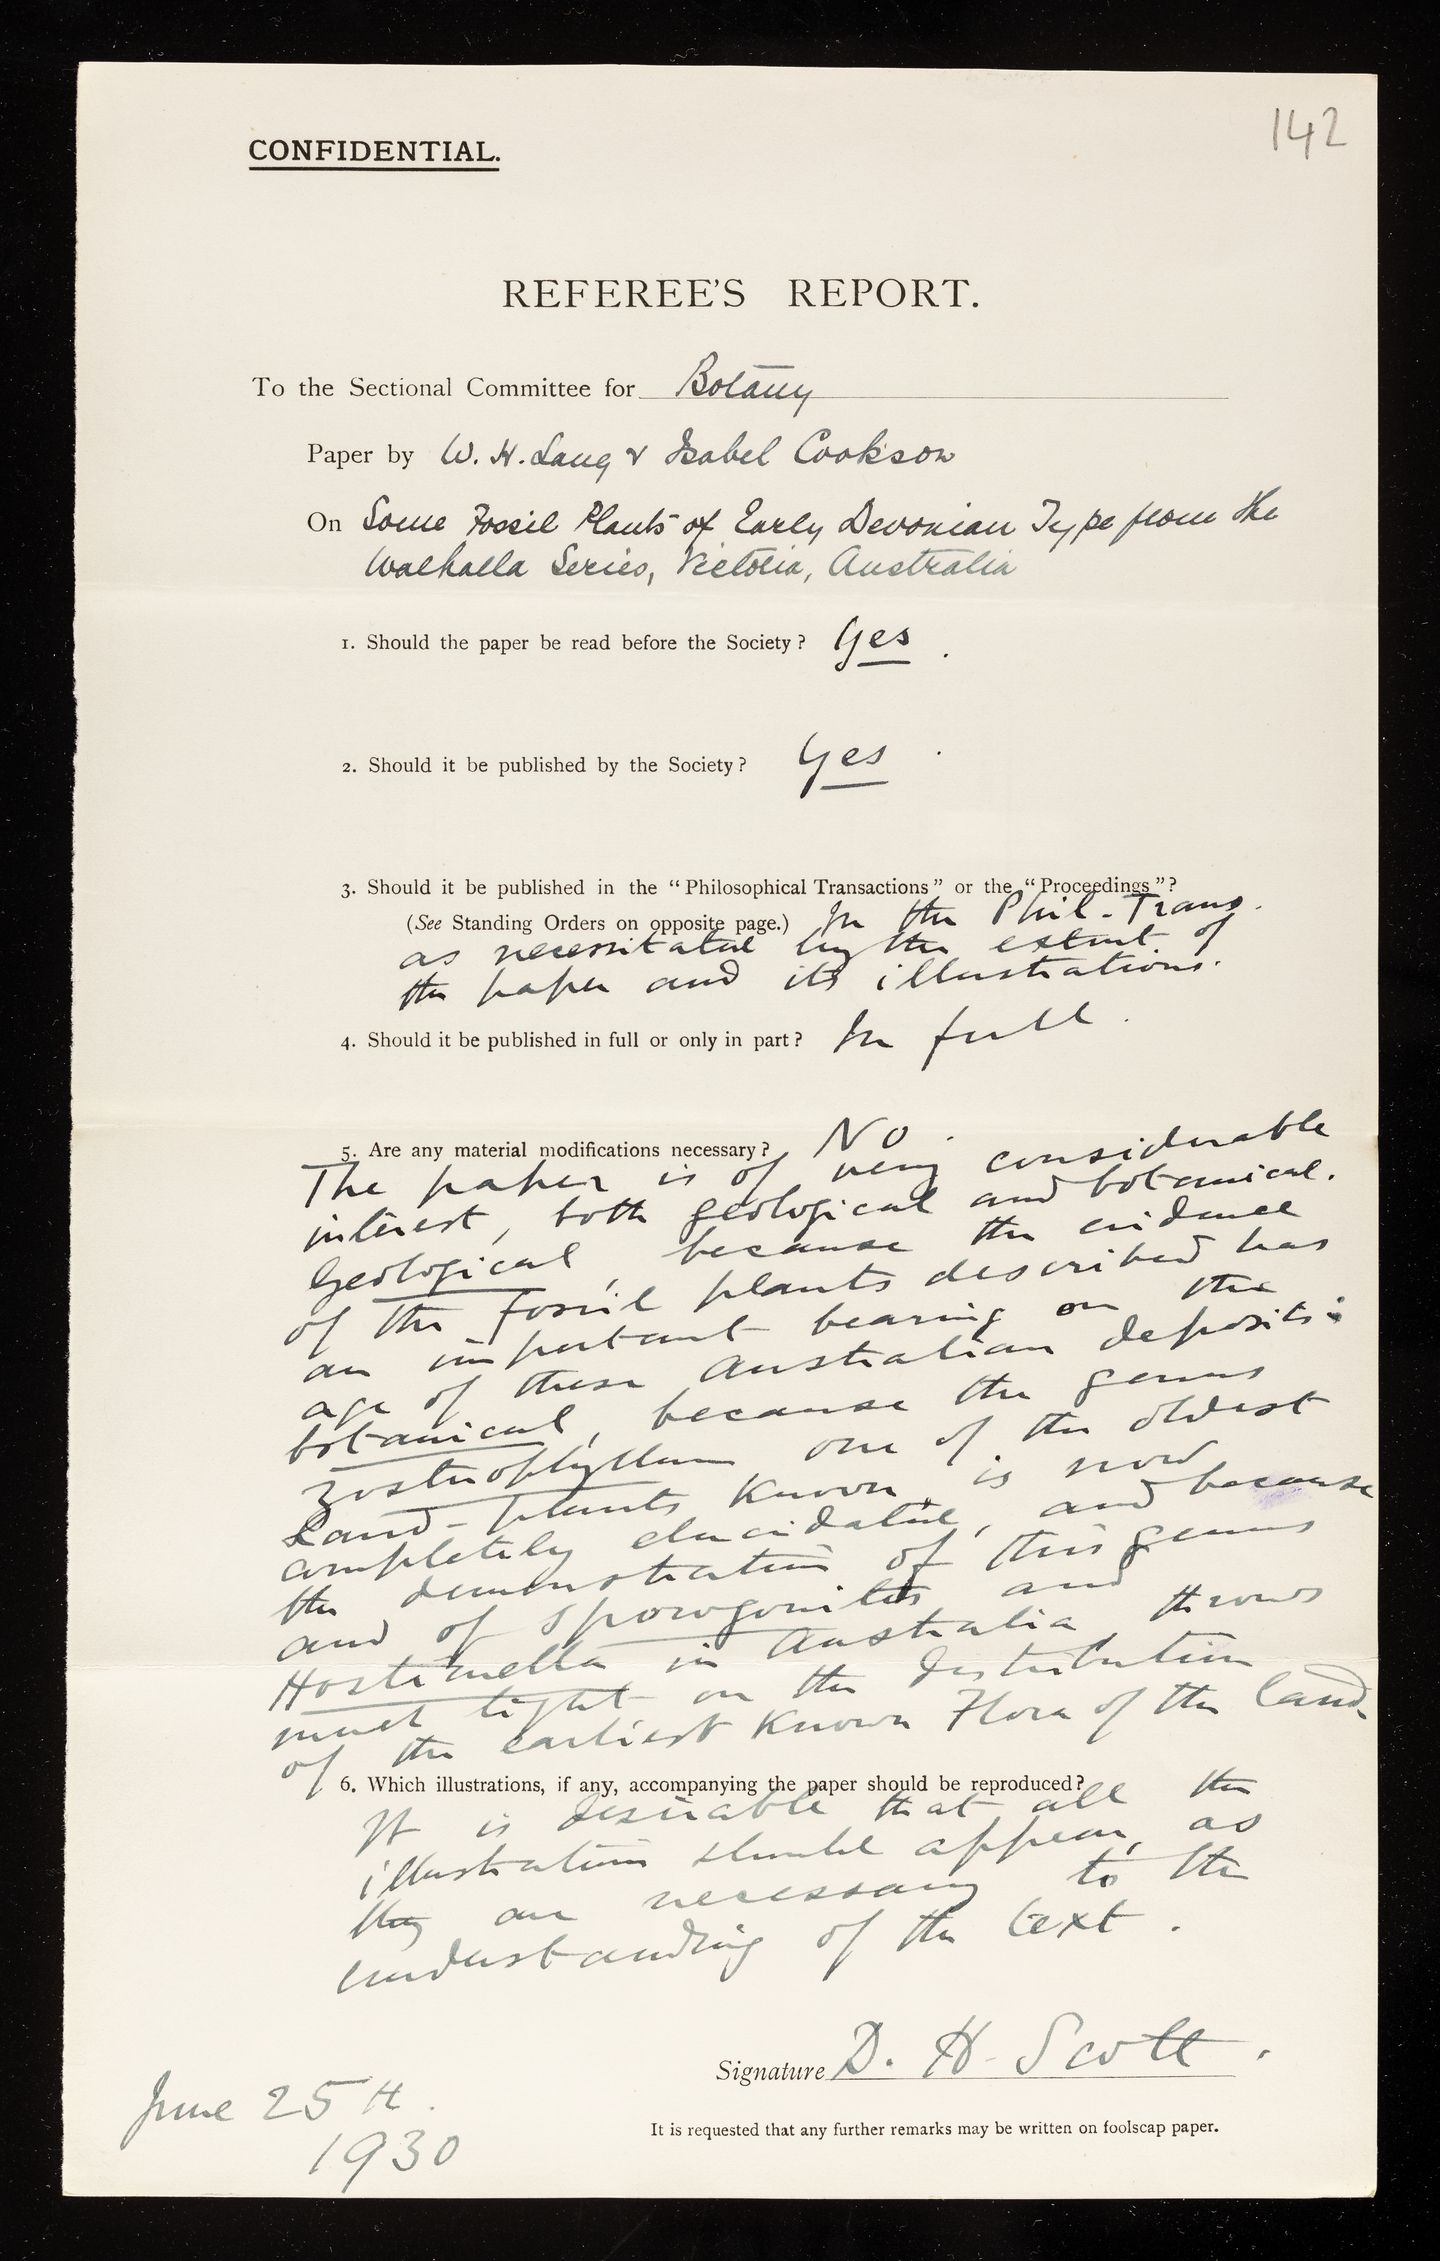 142
CONFIDENTIAL.
REFEREE'S REPORT.
To the Sectional Committee for Botany
Paper by W. H. Lang & Isabel Cookson
On Some Fossil Plants of Early Devonian Type from the
Walhalla Series, Victoria, Australia
1. Should the paper be read before the Society? Yes.
2. Should it be published by the Society? Yes.
3. Should it be published in the "Philosophical Transactions" or the "Proceedings"?
(See Standing Orders on opposite page.) In the Phil-Trans.
as necessitated by the extent of
the paper and its illustrations.
4. Should it be published in full or only in part? In full.
5. Are any material modifications necessary? No.
The paper is of very considerable
interest, both geological and botanical.
Geological, because the evidence
of the fossil plants described has
an important bearing on the
age of these Australian deposits:
botanical, because the genus
Zosterophyllum one of the oldest
Land-plants known, is now
completely elucidated, and because
the demonstration of this genus
and of Sporogonites and
Hostimella in Australia, throws
much light on the distribution
of the earliest known Flora of the land.
6. Which illustrations, if any, accompanying the paper should be reproduced?
It is desirable that all the
illustrations should appear, as
they are necessary to the
understanding of the text.
Signature D. H. Scott.
June 25th.
1930
It is requested that any further remarks may be written on foolscap paper.